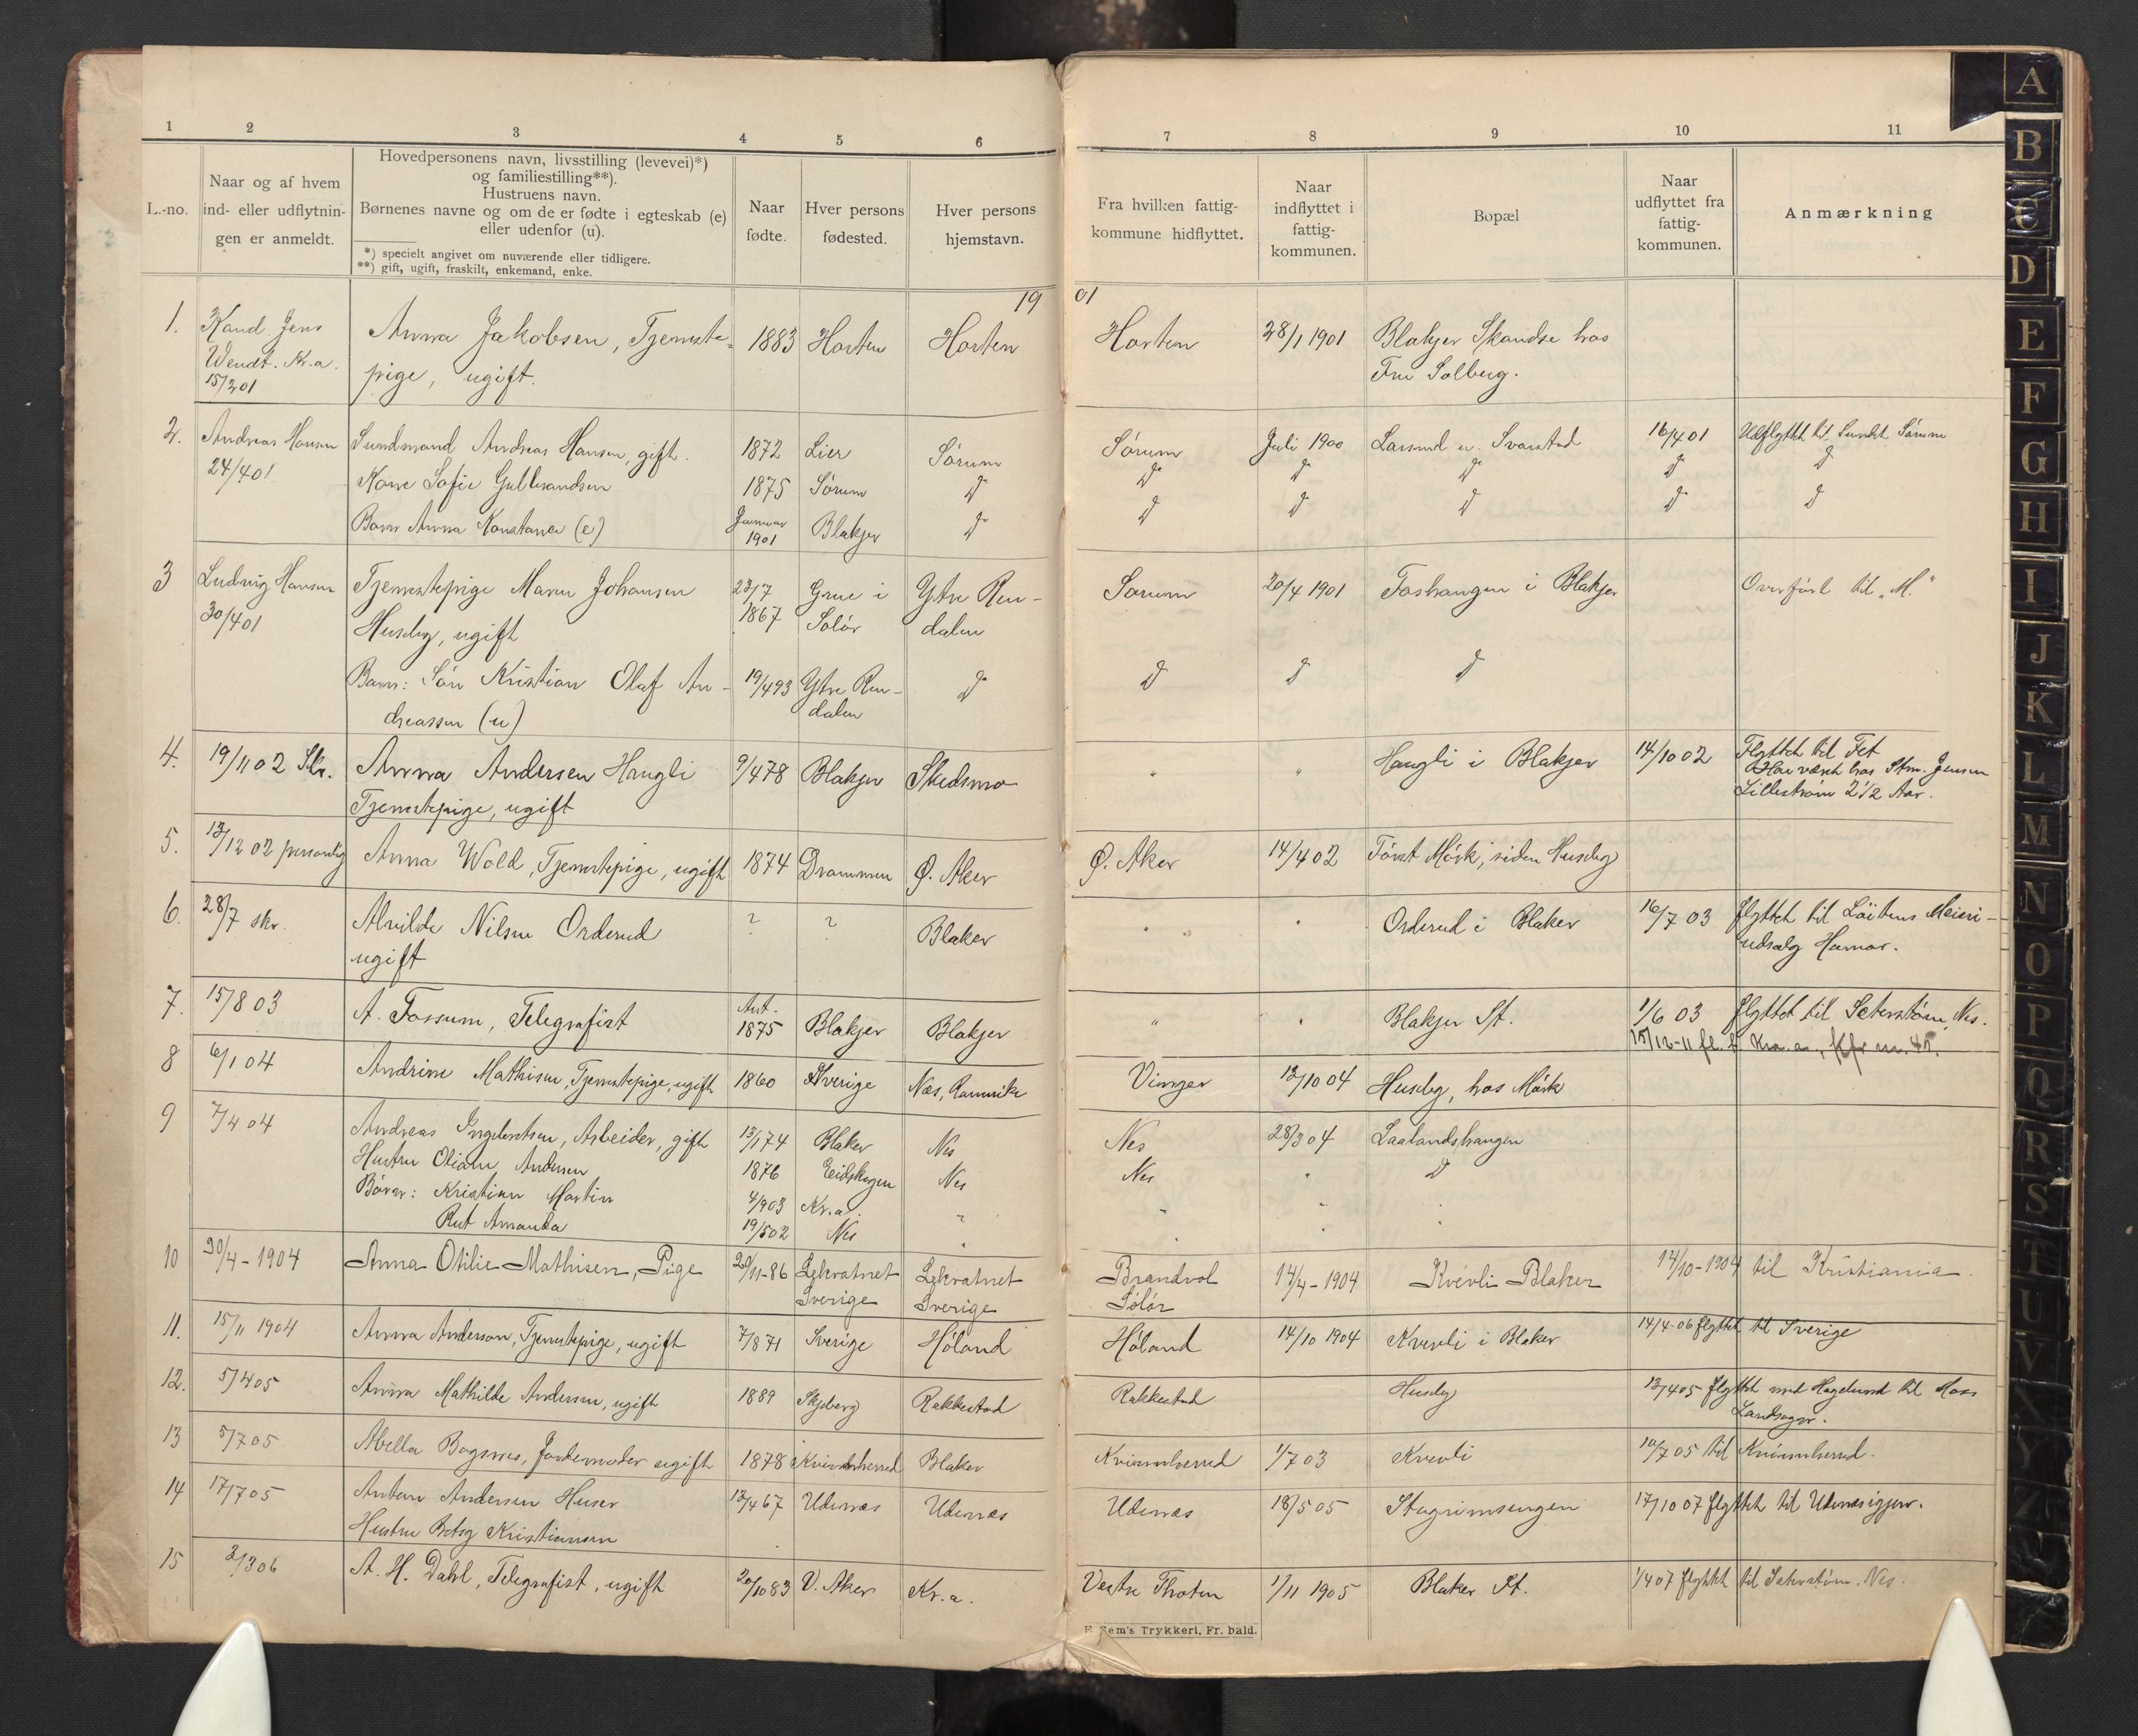 1 2 3 4 5 6 7 8 9 10 11
L.-no.
Naar og af hvem
ind- eller udflytnin-
gen er anmeldt.
Hovedpersonens navn, livsstilling (levevei)*)
og familiestilling**).
Hustruens navn.
Børnenes navne og om de er fødte i egteskab (e)
eller udenfor (u).
*) specielt angivet om nuværende eller tidligere.
**) gift, ugift, fraskilt, enkemand, enke.
Naar
fødte.
Hver persons
fødested.
Hver persons
hjemstavn.
Fra hvilken fattig-
kommune hidflyttet.
Naar
indflyttet i
fattig-
kommunen.
Bopæl
Naar
udflyttet fra
fattig-
kommunen.
Anmærkning
19 01
1. Kand. Jens Anna Jakobsen, Tjeneste- 1883 Horten Horten Horten 28/1 1901 Blakjer Skandse hos
Wendt. Kr.a. pige, ugift. Fru Solberg.
15/2 01
2. Andreas Hansen Sundmand Andreas Hansen, gift. 1872 Lier Sørum Sørum Juli 1900 Svarstad 16/4 01 Udflyttet til Sundet Sørum
24/4 01 Kone Sofie Gulbrandsen 1875 Sørum Do Do Do Do Do Do
Barn Anna Konstance (e) Januar Blakjer Do Do Do Do Do Do
1901
3 Ludvig Hansen Tjenestepige Maren Johansen 23/7 Grue i Ytre Ren- Sørum 20/4 1901 Foshaugen i Blakjer Overført til "M."
30/4 01 Huseby, ugift 1867 Solør dalen
Barn: Søn Kristian Olaf An- 19/4 93 Ytre Ren- Do Do Do Do
dreassen (u) dalen
4. 19/11 02 Skr. Anna Andersen Haugli 9/4 78 Blakjer Skedsmo " " Haugli i Blakjer 14/10 02 Flyttet til Fet
Tjenestepige, ugift Har været hos Stm. Jensen
Lillestrøm 2 1/2 Aar.
5. 13/12 02 personlig Anna Wold, Tjenestepige, ugift 1874 Drammen Ø. Aker Ø. Aker 14/4 02 Først Mørk, siden Huseby
6. 28/7 skr. Alvilde Nilsen Orderud ? ? Blaker " " Orderud i Blaker 16/7 03 flyttet til Løitens Meieri-
ugift udsalg Hamar.
7. 15/8 03 A. Fossum, Telegrafist Ant. 1875 Blakjer Blakjer " " Blakjer St. 1/6 03 flyttet til Seterstøen, Nes.
15/12-11 fl. t. Kra.a., kfr m. 45.
8 6/1 04 Andrine Mathisen, Tjenestepige, ugift 1860 Sverige Næs, Romerike Vinger 13/10 04 Huseby, hos Mørk
9 7/4 04 Andreas Ingebretsen, Arbeider, gift 13/1 74 Blaker Nes Nes 28/3 04 Laalandshaugen
Hustru Oliane Andersen 1876 Eidskogen Nes Nes " Do
Børn: Kristian Martin 4/9 03 Kr.a. " " " "
Rut Amanda 19/5 02 Nes " " " "
10 30/4-1904 Anna Otilie Mathisen, Pige 20/11-86 Lekvatnet Lekvatnet Brandvol 14/4-1904 Kvevli Blaker 14/10-1904 til Kristiania.
Sverige Sverige Solør
11. 15/11 1904 Anna Anderson, Tjenestepige, ugift 7/8 71 Sverige Høland Høland 14/10 1904 Kvevli i Blaker 14/4-06 flyttet til Sverige
12. 5/4 05 Anna Mathilde Andersen, ugift 1889 Skjeberg Rakkestad Rakkestad Huseby 13/4 05 flyttet med Hagelund til Moss
Landsogn.
13 5/7 05 Abella Bagsnes, Jordemoder ugift 1878 Kvindsherred Blaker Kvinnsherred 1/7 03 Kvevli 10/7 05 til Kvinnsherred.
14 17/7 05 Anton Andersen Huser 13/4 67 Udenæs Udenæs Udenæs 18/5 05 Stegrimsengen 17/10 07 flyttet til Udenæs igjen.
Hustru Betsy Kristiansen
15 3/3 06 A. H. Dahl, Telegrafist, ugift 20/10 83 V. Aker Kr.a. Vestre Thoten 1/11 1905 Blaker St. 1/4 07 flyttet til Seterstøen. Nes.
E. Sem's Trykkeri, Fr. hald.
A
B
C
D
E
F
G
H
I
J
K
L
M
N
O
P
Q
R
S
T
U
V
Y
Z